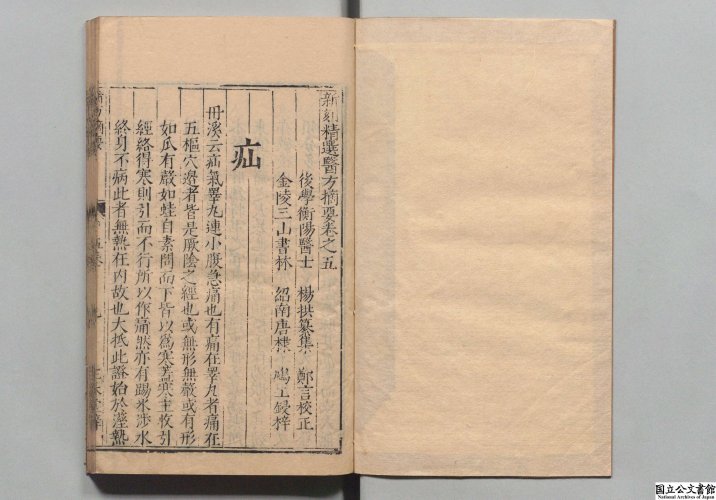 新刻精選醫方摘要卷之五
後學衡陽醫士 楊拱纂集 鄭言校正
金陵三山書林 紹南唐 鋟梓
疝
丹溪云疝氣睪丸連小腹急痛也有痛在睪丸者痛在
五樞穴邉者皆是厥隂之經也或無形無聲或有形
如瓜有聲如蛙自素問而下皆以爲寒蓋寒主收引
經絡得寒則引而不行所以作痛然亦有踢氷涉水
終身不病此者無熱在内故也大抵此證始於溼熱
国立公文書館
National Archives of Japan